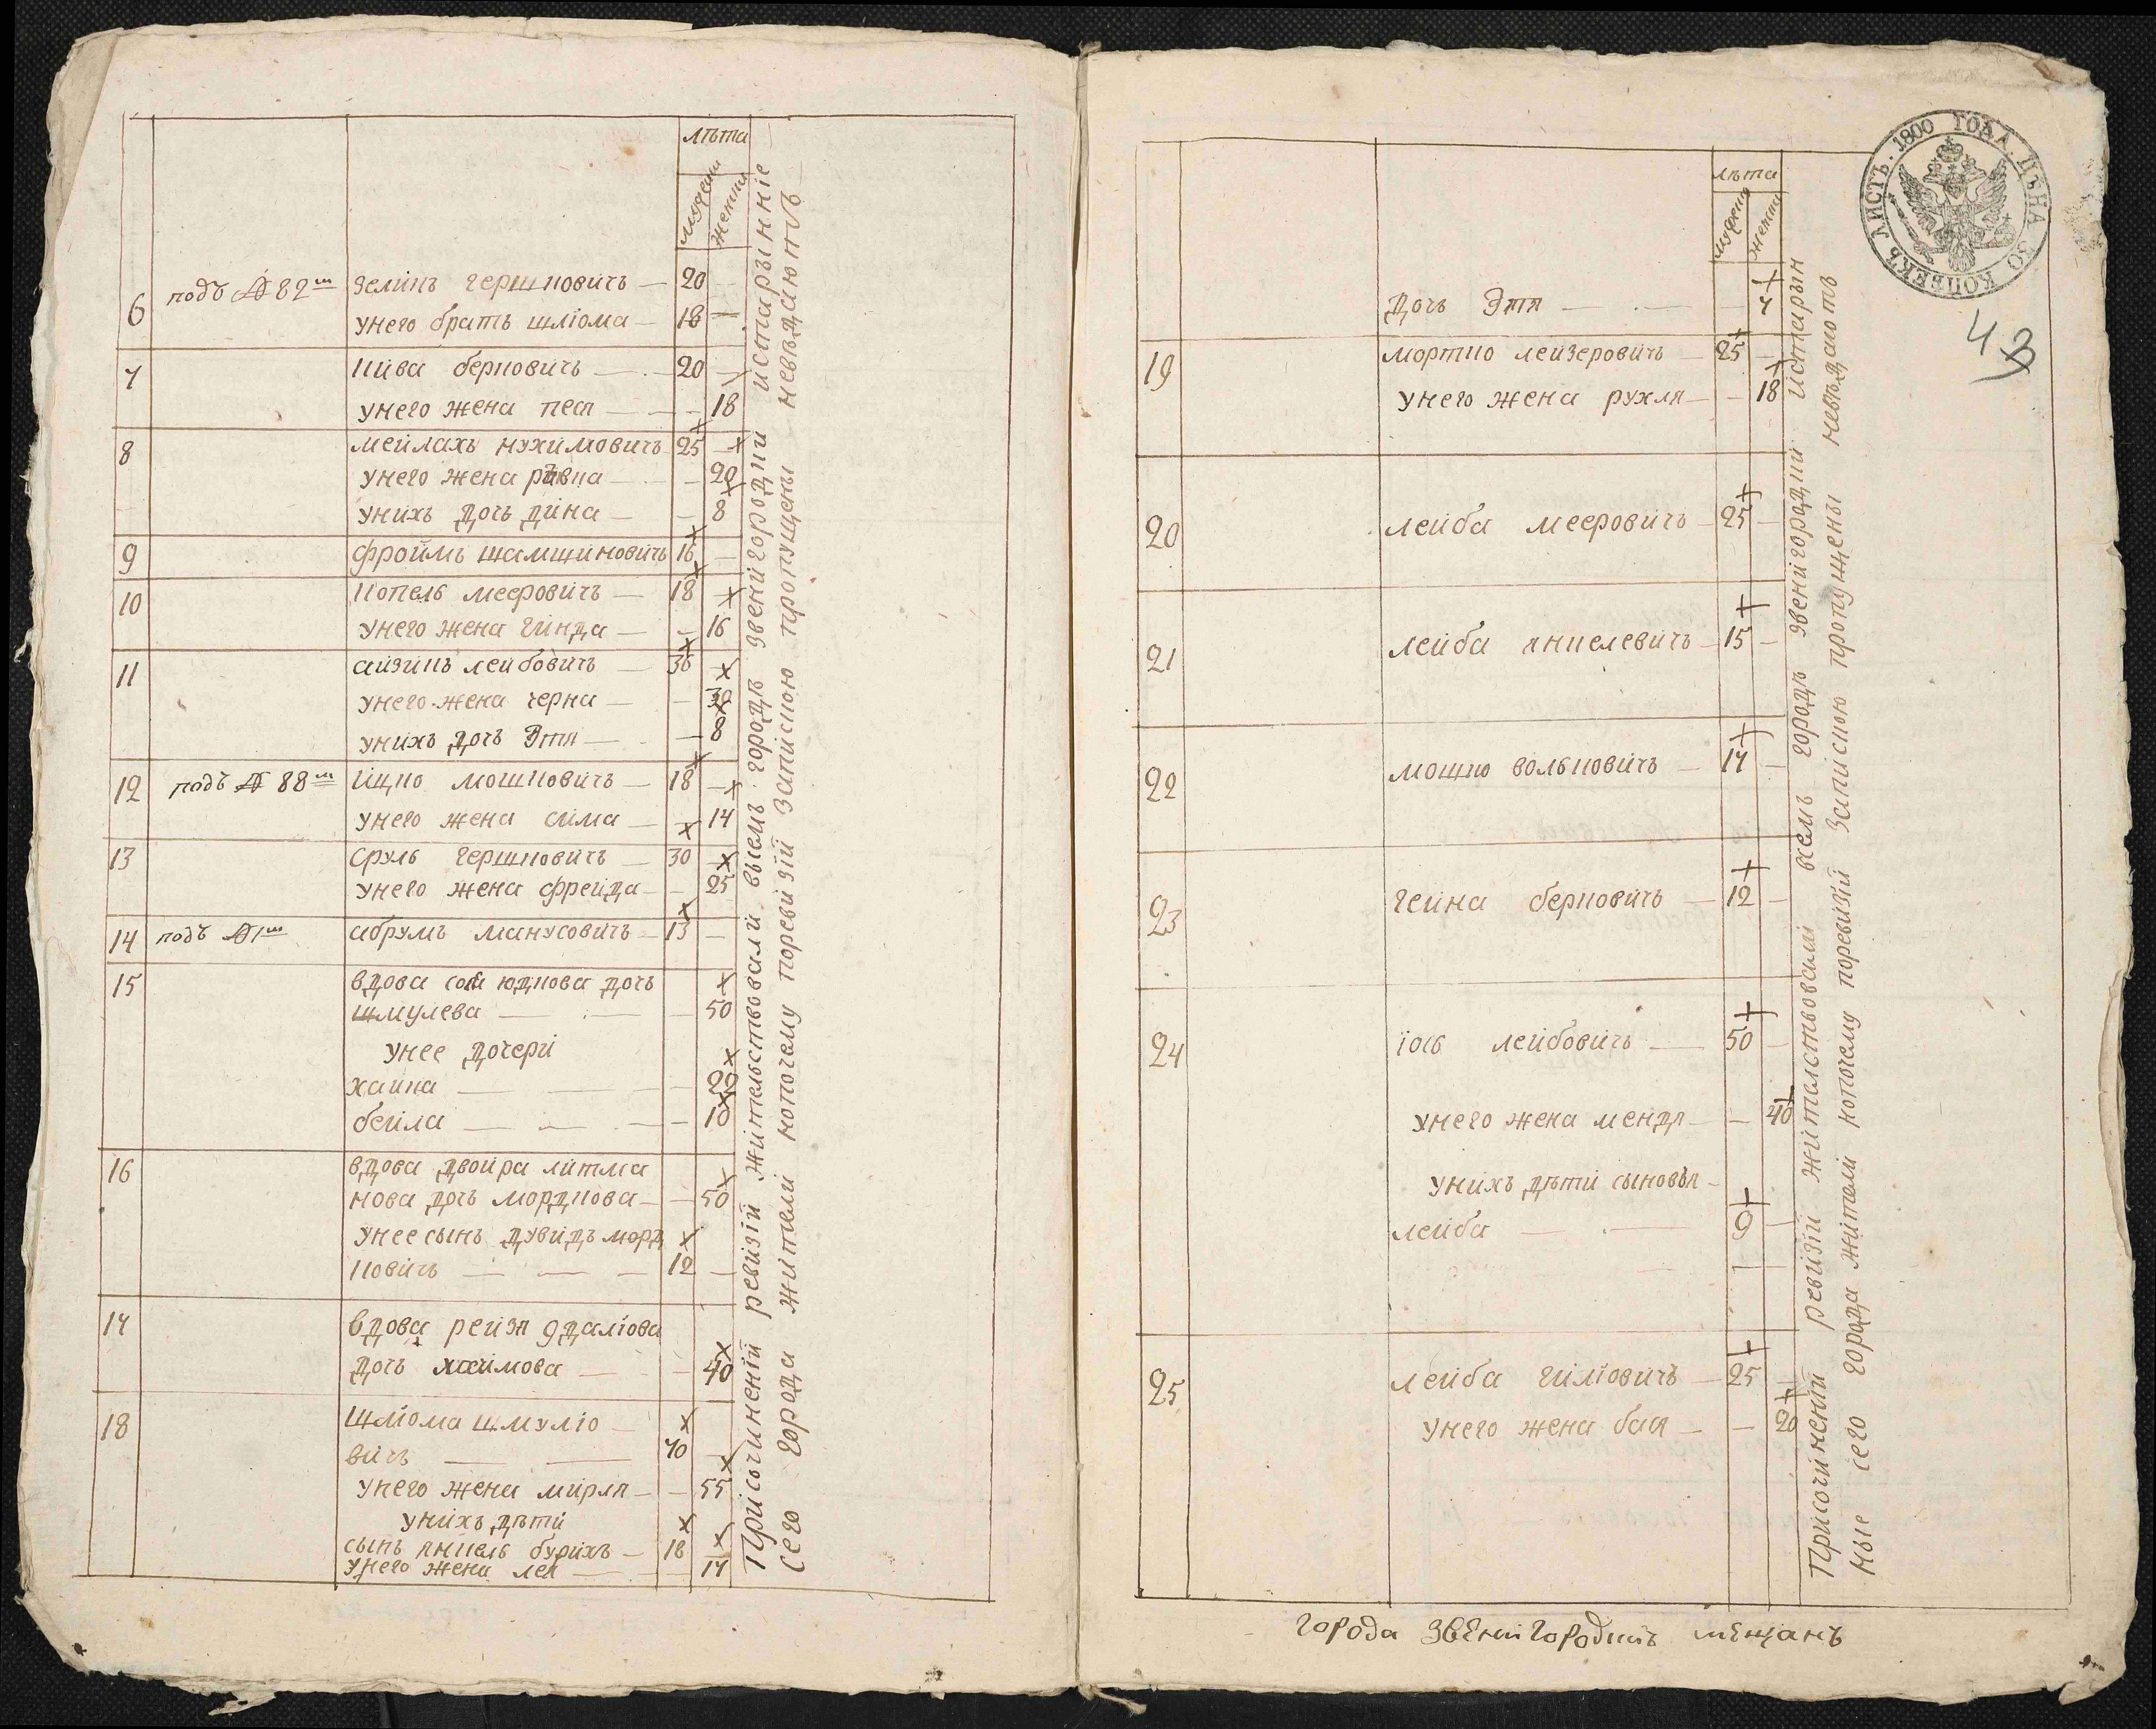 лѣта
мужеска
женска
6 подъ № 82м зеликъ гершковичъ — 20
унего братъ шліома — 18 —
7 кива берковичъ — 20 —
унего жена песя — — 18
8 мейлахъ нухимовичъ 25 —
унего жена — — 20
унихъ дочь дина — — 8
9 фроимъ шамшиновичъ 16 —
10 копель мееровичъ — 18
унего жена гинда — — 16
11 айзикъ лейбовичъ — 36
унего жена черна — — 30
унихъ дочь Этя — — 8
12 подъ № 88м ицко мошковичъ — 18 —
унего жена сима — 14
13 сруль гершковичъ — 30
унего жена фрейда — — 25
14 подъ № 1м абрумъ манусовичъ — 13 —
15 вдова юдкова дочь
шмулева — — — 50
унее дочери
хайка — — — 22
бейла — — — 10
16 вдова двойра литма
нова дочь мордкова — — 50
унее сынъ дувидъ морд
ковичъ — — — 12 —
17 вдова рейзя
дочь хаимова — — 40
18 шліома шмуліо —
вичъ — — 70 —
унего жена мирля — — 55
унихъ дѣти
сынъ янкель бурихъ — 18
унего жена лея — — 17
Присочиненій ревизій жительствовали всемъ городѣ звенигородки истарыннiе
сего города жители нопочему поревизій запискою пропущены невѣдаютъ
ЛИСТЪ. 1800 ГОДА. ЦѢНА 30 КОПѢЕКЪ
43
лѣта
мужеска
женска
дочь Этя — — — 7
19 мортко лейзеровичъ — 25 —
унего жена рухля — — 18
20 лейба мееровичъ — 25 —
21 лейба янкелевичъ — 15 —
22 мошко вольковичъ — 17 —
23 берковичъ — 12 —
24 іось лейбовичъ — 50 —
унего жена мендя — — 40
унихъ дѣти сыновья —
лейба — — 9 —
25 лейба гиліовичъ — 25 —
унего жена бася — — 20
Присочиненій ревизій жителствовали всемъ городѣ звенигородки истарын
ные сего города жители нопочему поревизій запискою пропущены невѣдаютъ
города Звенигородки мещанъ